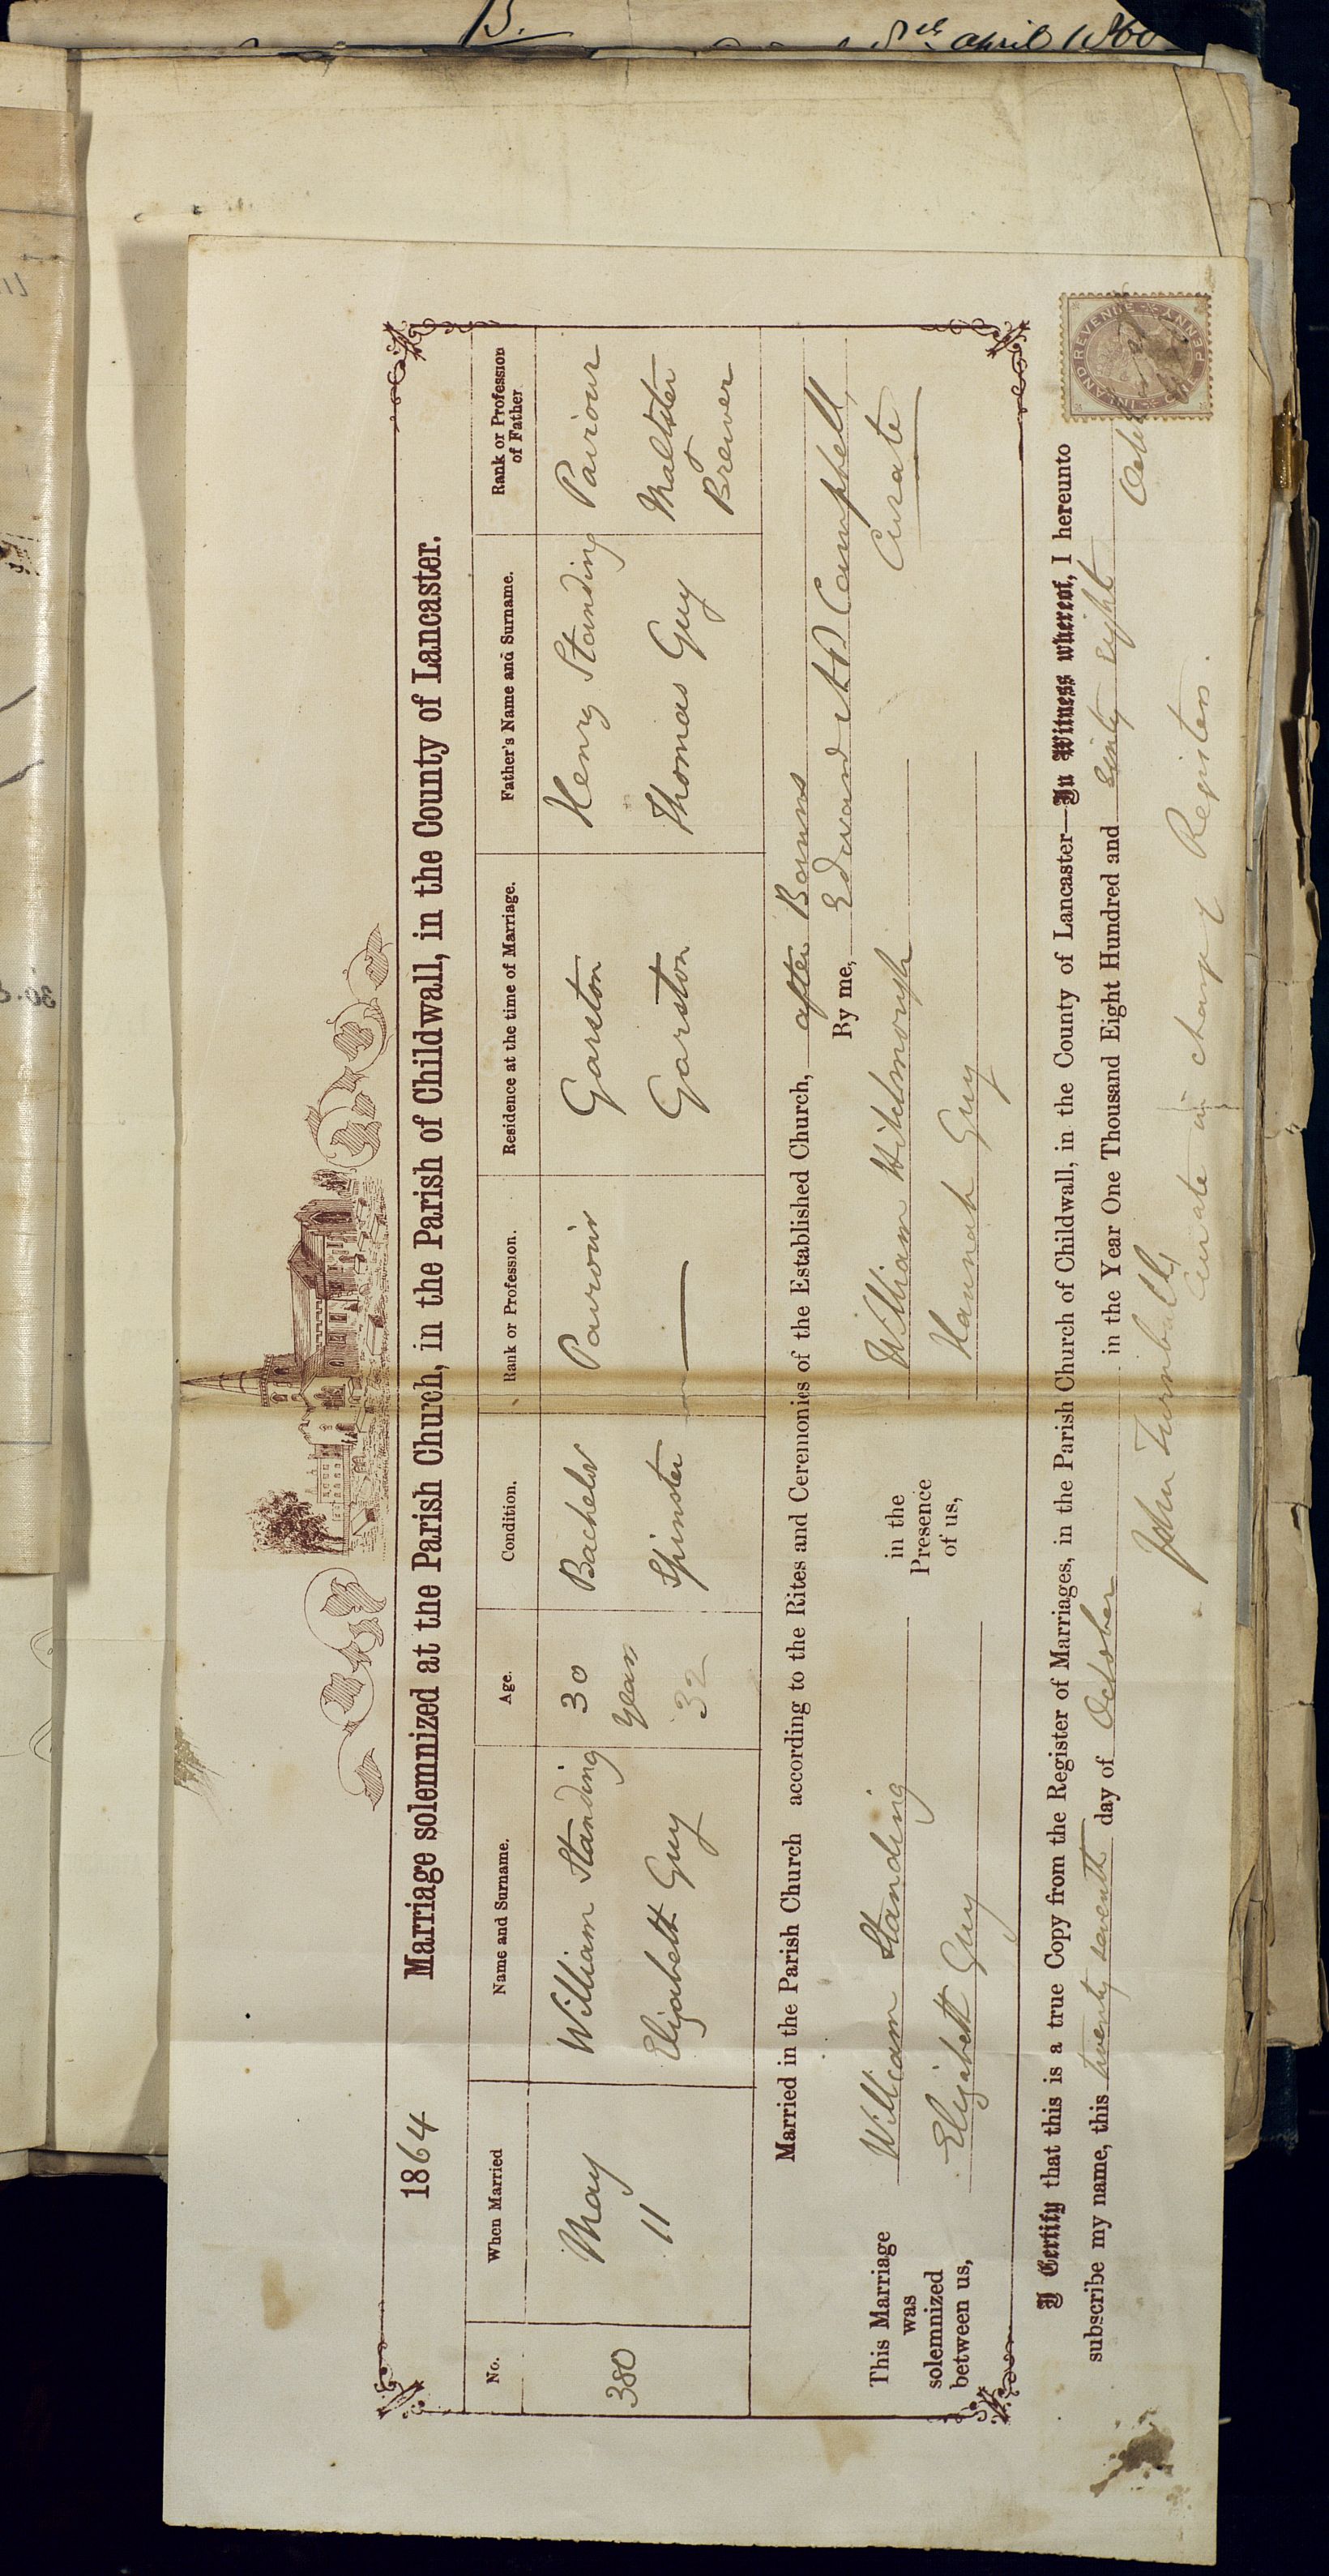 B.
april 1860
1864 Marriage solemnized at the Parish Church, in the Parish of Childwall, in the County of Lancaster.
No. When Married Name and Surname. Age. Condition. Rank or Profession. Residence at the time of Marriage. Father's Name and Surname. Rank or Profession of Father
380 May 11 William Standing 30 years Bachelor Paviour Garston Henry Standing Paviour
Elizabeth Guy 32 Spinster — Garston Thomas Guy Maltster Brewer
Married in the Parish Church according to the Rites and Ceremonies of the Established Church, after Banns
By me, Edward A P Campbell,
Curate
This Marriage was solemnized between us,
William Standing
Elizabeth Guy
in the Presence of us,
William Hitchmough
Hannah Guy
I Certify that this is a true Copy from the Register of Marriages, in the Parish Church of Childwall, in the County of Lancaster—In Witness whereof, I hereunto
subscribe my name, this twenty seventh day of October in the Year One Thousand Eight Hundred and Sixty eight
John Turnbull
Curate in charge of Register.
INLAND REVENUE
ONE PENNY